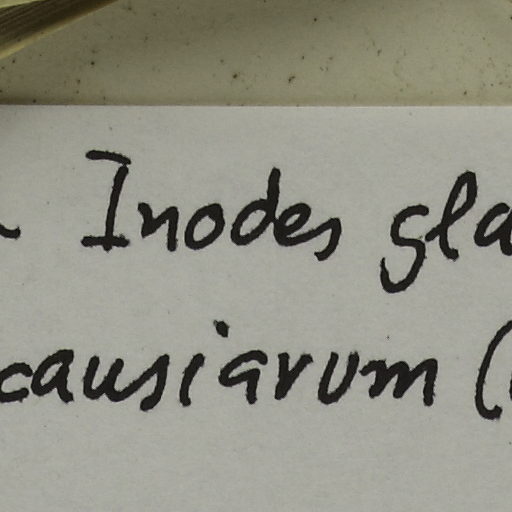 Inodes gla
causiarum (